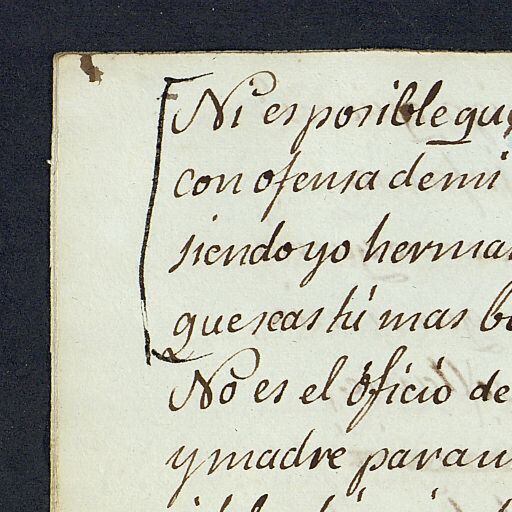 Ni es posible que
con ofensa de mi
siendo yo herma
que seas tú mas b
No es el óficio de
y madre para